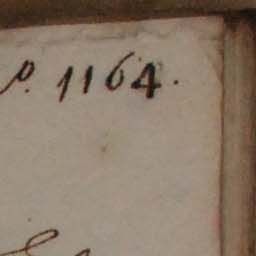 º. 1164.